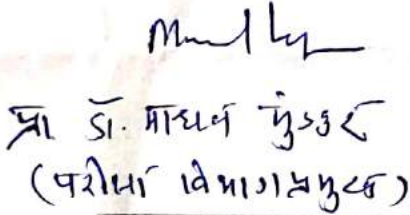 प्रा डॉ. माधव मुंडकर
(परीक्षा विभागप्रमुख)